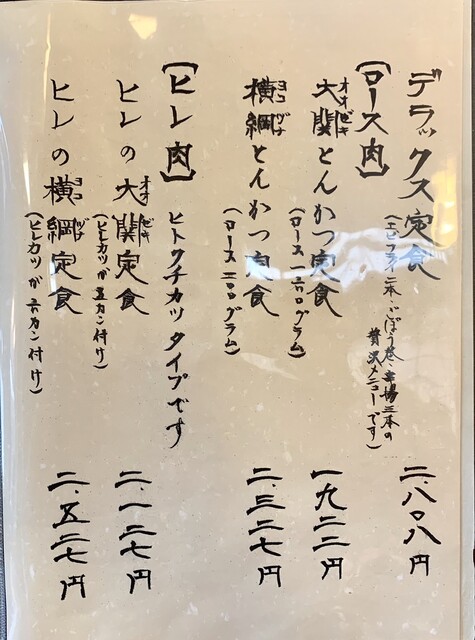 デラックス定食 二、八〇八円
(エビフライ二本・ごぼう巻・串揚三本の
贅沢メニューです)
【ロース肉】
オオゼキ
大関とんかつ定食 一九二二円
(ロース一六〇グラム)
ヨコヅナ
横綱とんかつ定食 二、三二七円
(ロース二〇〇グラム)
【ヒレ肉】 ヒトクチカツタイプです
オオゼキ
ヒレの大関定食 二、一二七円
(ヒレカツが五カン付け)
ヨコヅナ
ヒレの横綱定食 二、五二七円
(ヒレカツが六カン付け)